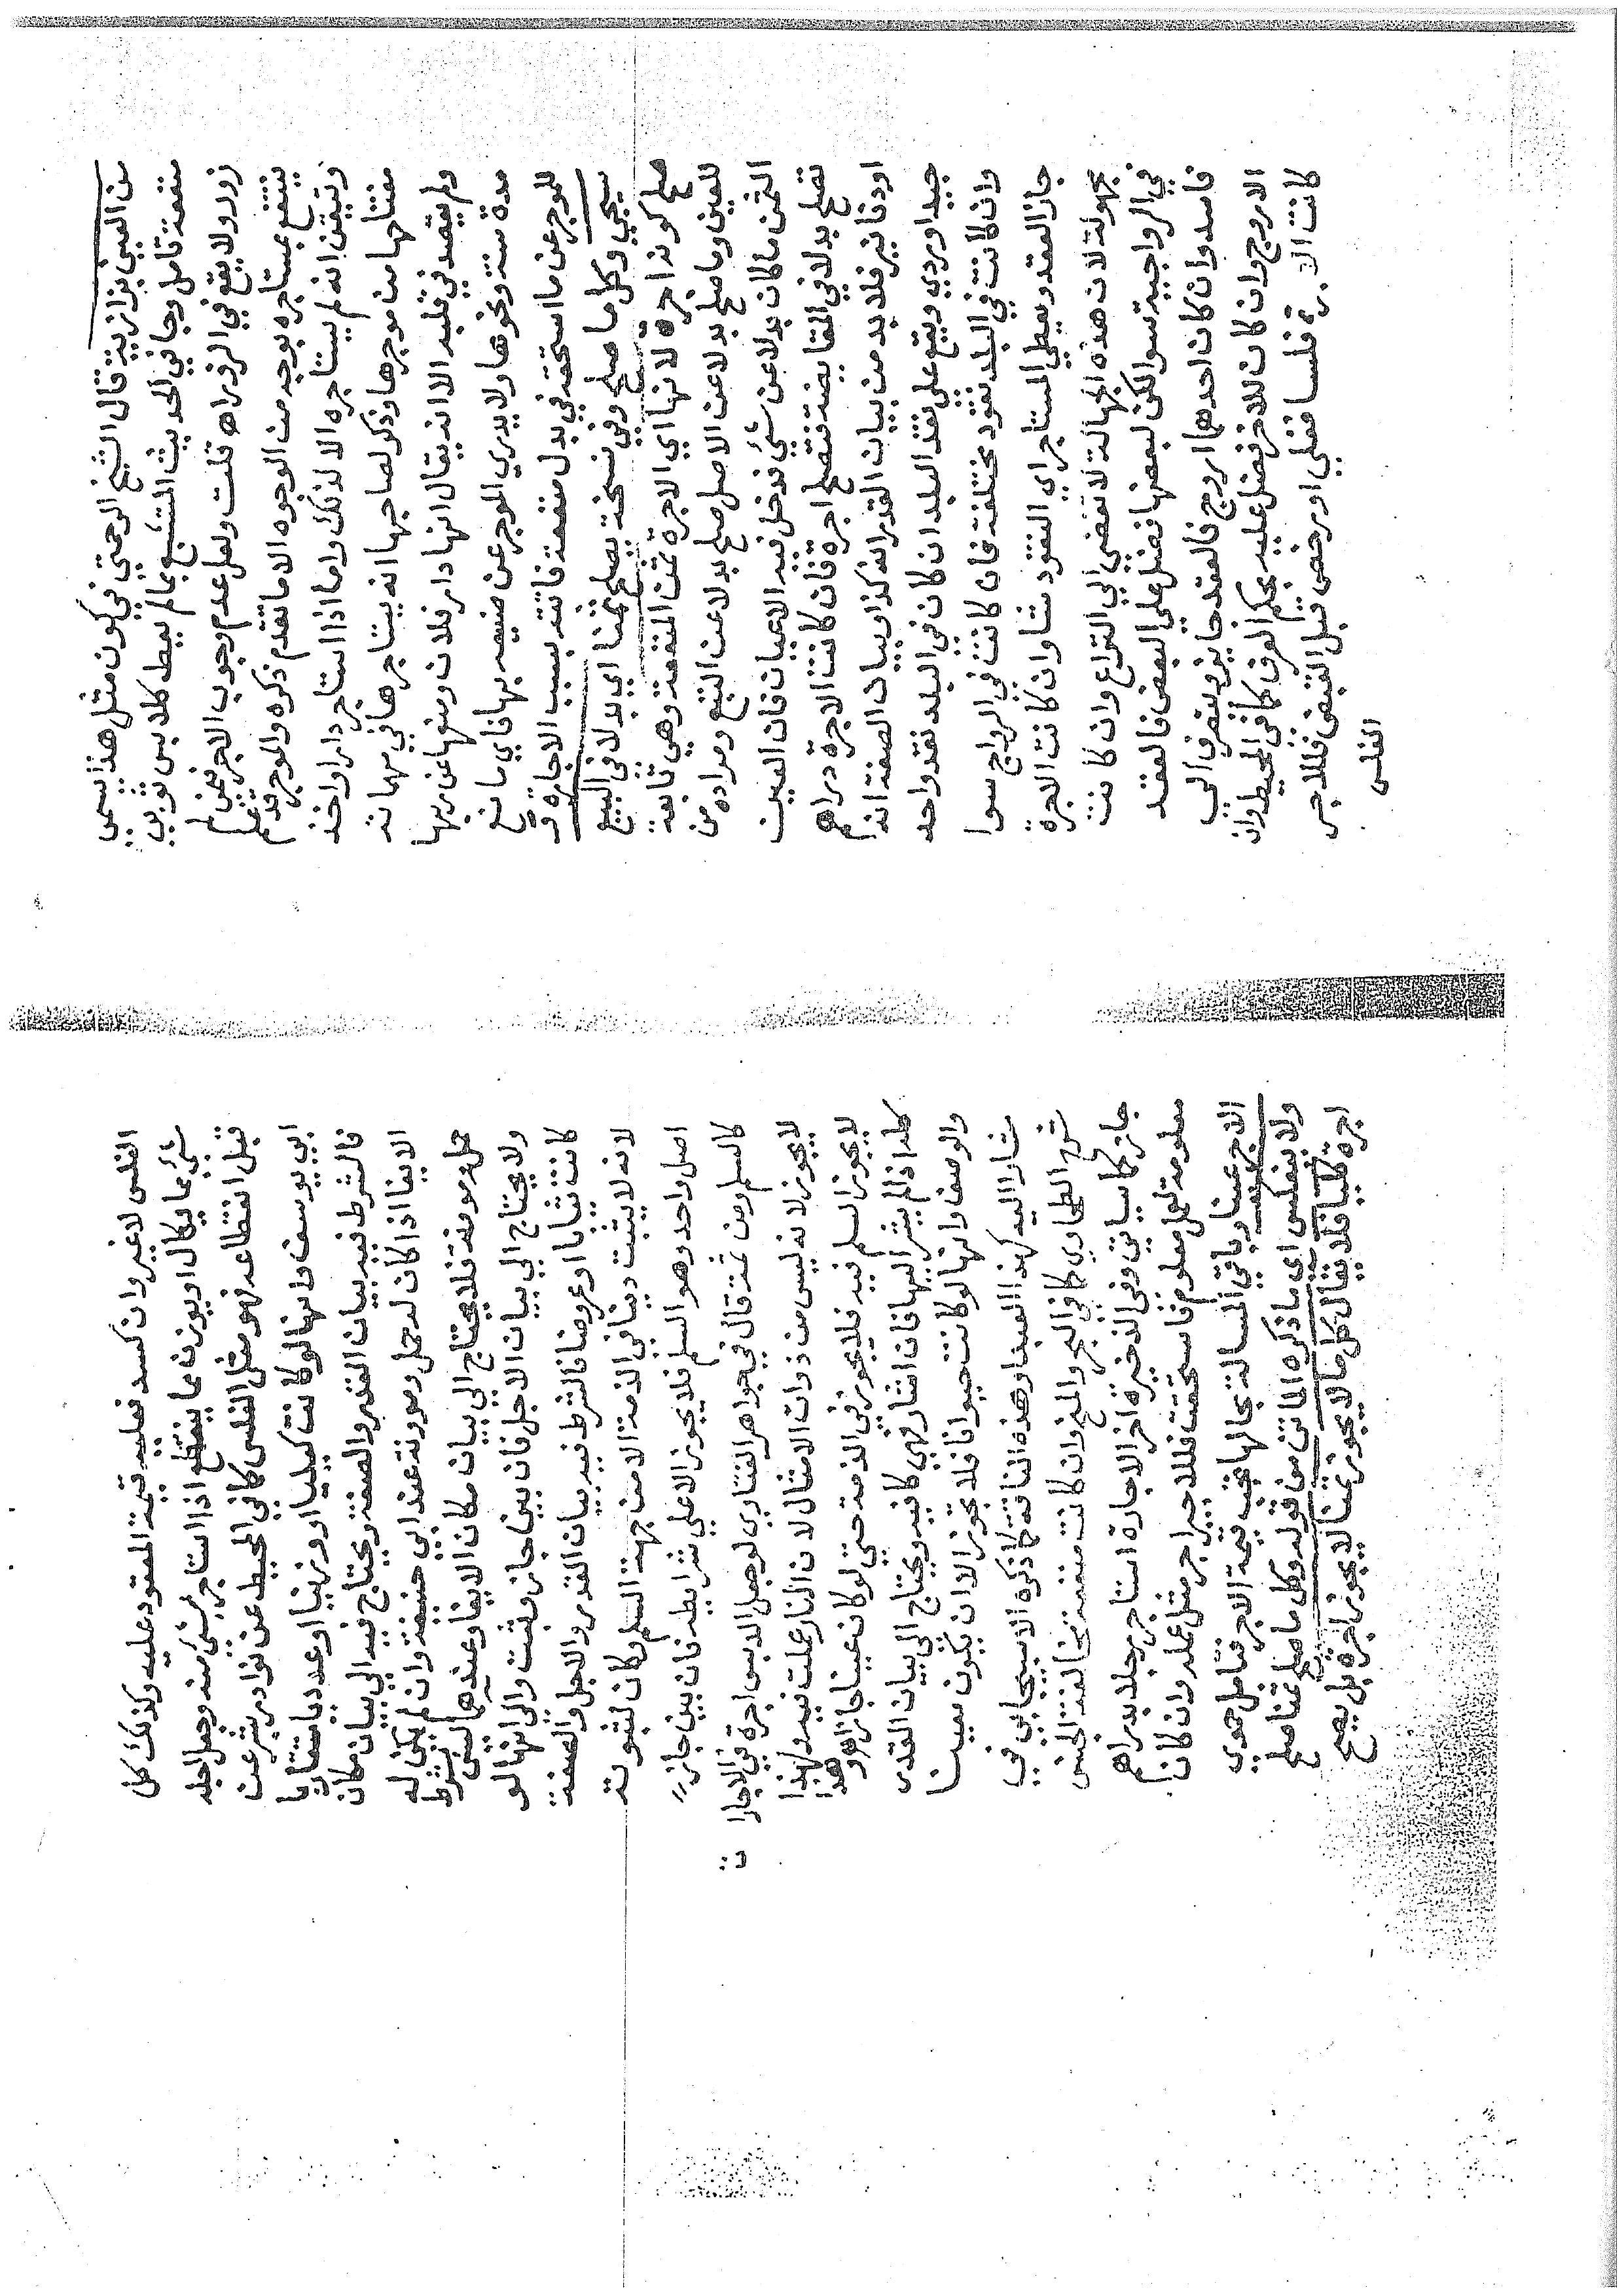 من الغبي بزازية قال الشيخ الرحمتي في كون مثل هذا يسمي
منفعة تامل وجا في الحديث المتشبع بمالم يعط كلابس ثوبي
زور ولا يقع في الزور اه قلت ولعل عدم وجوب الاجر فيما لم
ينتفع بمستاجره يوجد من الوجوه الا ما تقدم ذكره والموجر قد علم
وتيقن انه لم يستاجره الا لذلك واما اذا استاجر دارا واخذ
مفتاحها من موجرها وذكر لصاحبها انه يستاجرها في مهماته
ولم يقصد في قلبه الا انه يقال انها دار فلان ومنها عن ربها
مدة سنة ونحوها ولا يدري الموجر عن ضميره بها فاي مانع
للموجر عن ما استحقه في بدل منفعة فاتته بسبب الاجارة و
سيجي وكل ما صلح وفي نسخة يصلح ثمنا اي بدلا في البيع
صلح كونه اجرة لانها اي الاجرة ثمن المنفعة وهي تابعة
للعين وما صلح بدلا عن الاصل صلح بدلا عن التبع ومراده من
الثمن ما كان بدلا عن شئ فدخل فيه الاعيان فان العين
تصلح بدلا في المقايضة فتصلح اجرة فان كانت الاجرة دراهم
او دنانير فلا بد من بيان القدر انه كذا وبيان الصفة انه
جيد او ردي ويقع على نقد البلد ان كان في البلد نقد واحد
وان كانت في البلد نقود مختلفة فان كانت في الرواج سوا
جاز العقد ويعطي المستاجر اي النقود شا وان كانت الاجرة
مجهولة لان هذه الجهالة لا تفضي الي النزاع وان كانت
في الرواجية سوا لكن لبعضها فضل على البعض فالعقد
فاسد وان كان احدها اروج فالعقد جايز وينصرف الي
الاروج وان كان للاخر فضل عليه بحكم العرف كما في المحيط وان
كانت الاجرة فلسا فغلي او رخص قبل القبض فللاجر
الفلس
الفلس لا غير وان كسد فعليه قيمة المعقود عليه وكذلك كل
شئ مما يكال او يوزن مما ينقطع اذا استاجر بشئ منه وجعل اجله
قبل انقطاعه فهو مثل الفلس كما في المحيط عن نوادر بشر عن
ابي يوسف وانها لو كانت كيليا او وزنيا او عدديا متقاربا
فالشرط فيه بيان القدر والصفة ويحتاج فيه الي بيان مكان
الايفا اذا كان له حمل ومونة عند ابي حنيفة وان لم يكن له
حمل ومونة فلا يحتاج الي بيان مكان الايفا وعندهما ليس بشرط
ولا يحتاج الي بيان الاجل فان بين جاز وثبت والي انها لو
كانت ثيابا او عروضا فالشرط فيه بيان القدر والاجل والصفة
لانه لا يثبت دينا في الذمة الا من جهة السلم فكان لثبوته
اصل واحد وهو السلم فلا يجوز الا علي شرايطه فان بين جاز
كالسلم ومن ثمة قال في جواهر الفتاوي لو جعل الدبس اجرة في الاجارة
لا يجوز لانه ليس من ذوات الامثال لان النار عملت فيه ولهذا
لا يجوز السلم فيه فلا يجوز في الذمة حتي لو كان عينا جاز وهذا
كله اذا لم يشر اليها فان اشار فهي كافيه ويحتاج الي بيان القدر
والوصف وانها لو كانت حيوانا فلا تجوز الا ان يكون معينا
مشارا اليه كهذا العبد وهذه الناقة كما ذكره الاسبيجابي في
شرح الطحاوي كما في البحر والمنح وان كانت منفعة تخالفت الجنس
جاز كما سياتي وفي الذخيرة اخر الاجارة استاجر رجلا بدراهم
معلومة لعمل معلوم فاستحقت فللاجير اجر مثل عمله وان كان
الاجر عينا وباقي المسالة بحالها تجب قيمة الاجر فتامل حموي
ولا ينعكس اي ما ذكره الماتن من قوله وكل ما صلح ثمنا صلح
اجرة كليا فلا يقال كل ما لا يجوز ثمنا لا يجوز اجرة بل يصح